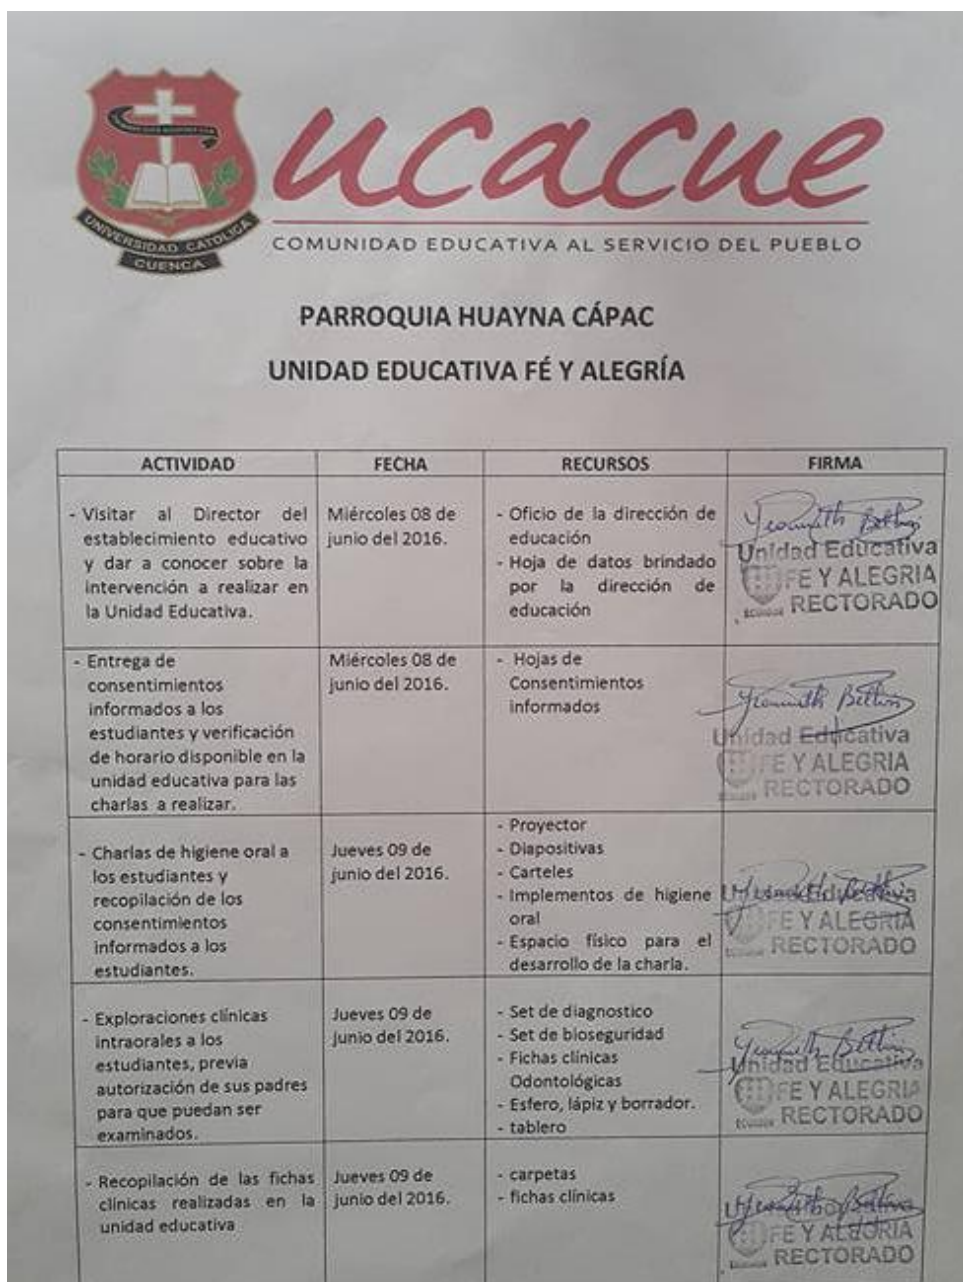 ucacue
UNIVERSIDAD CATOLICA
CUENCA
COMUNIDAD EDUCATIVA AL SERVICIO DEL PUEBLO
PARROQUIA HUAYNA CÁPAC
UNIDAD EDUCATIVA FÉ Y ALEGRÍA
ACTIVIDAD FECHA RECURSOS FIRMA
- Visitar al Director del
establecimiento educativo
y dar a conocer sobre la
intervención a realizar en
la Unidad Educativa.
Miércoles 08 de
junio del 2016.
- Oficio de la dirección de
educación
- Hoja de datos brindado
por la dirección de
educación
Unidad Educativa
FE Y ALEGRIA
ECUADOR RECTORADO
- Entrega de
consentimientos
informados a los
estudiantes y verificación
de horario disponible en la
unidad educativa para las
charlas a realizar.
Miércoles 08 de
junio del 2016.
- Hojas de
Consentimientos
informados
Unidad Educativa
FE Y ALEGRIA
ECUADOR RECTORADO
- Charlas de higiene oral a
los estudiantes y
recopilación de los
consentimientos
informados a los
estudiantes.
Jueves 09 de
junio del 2016.
- Proyector
- Diapositivas
- Carteles
- Implementos de higiene
oral
- Espacio físico para el
desarrollo de la charla.
Unidad Educativa
FE Y ALEGRIA
ECUADOR RECTORADO
- Exploraciones clínicas
intraorales a los
estudiantes, previa
autorización de sus padres
para que puedan ser
examinados.
Jueves 09 de
junio del 2016.
- Set de diagnostico
- Set de bioseguridad
- Fichas clínicas
Odontológicas
- Esfero, lápiz y borrador.
- tablero
Unidad Educativa
FE Y ALEGRIA
ECUADOR RECTORADO
- Recopilación de las fichas
clínicas realizadas en la
unidad educativa
Jueves 09 de
junio del 2016.
- carpetas
- fichas clínicas
FE Y ALEGRIA
RECTORADO